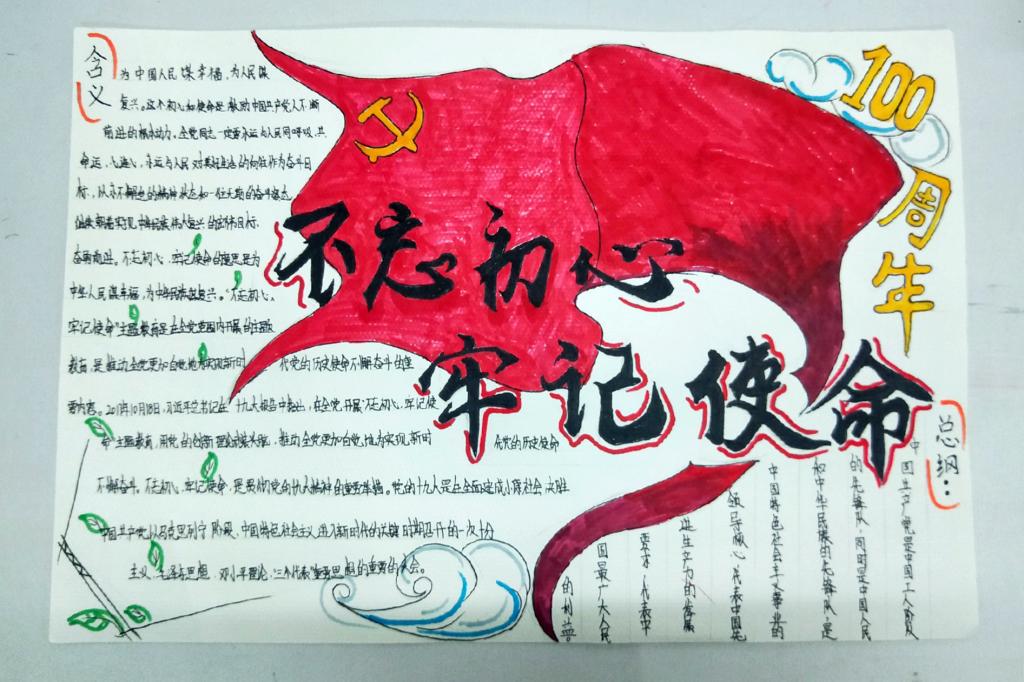 100
周年
不忘初心
牢记使命
含义
为中国人民谋幸福，为人民谋
复兴。这个初心和使命是激励中国共产党人不断
前进的根本动力。全党同志一定要永远与人民同呼吸、共
命运、心连心，永远与人民对美好生活的向往作为奋斗目
标，以永不懈怠的精神状态和一往无期的奋斗姿态
继续朝着实现中华民族伟大复兴的宏伟目标，
奋勇前进。不忘初心，牢记使命的意思是为
中华人民谋幸福，为中华民族谋复兴。“不忘初心、
牢记使命”主题教育是在全党范围内开展的主题
教育，是推动全党更加自觉地为实现新时 代党的历史使命不懈奋斗的重
要内容。2017年10月18日，习近平总书记在 十九大报告中指出，在全党开展不忘初心，牢记使
命主题教育，用党的创新理论武装头脑，推动全党更加自觉地为实现新时 代党的历史使命
不懈奋斗。不忘初心，牢记使命，是 党的十九大是在全面建成小康社会决胜
中国共产党以马克思列宁 阶段、中国特色社会主义进入新时代的关键时期召开的一次十分
主义、毛泽东思想、邓小平理论、三个代表 重要的大会。
总纲：
中国共产党是中国工人阶级
的先锋队，同时是中国人民
和中华民族的先锋队，是
中国特色社会主义事业的
领导核心，代表中国先
进生产力的发展
要求，代表中
国最广大人民
的利益。